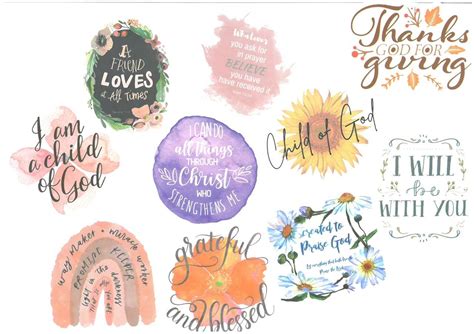 A
FRIEND
LOVES
At All Times
Whatever
you ask for
in prayer
BELIEVE
you have
received it
Thanks
GOD FOR
giving
I am
a child
of God
I CAN DO
all things
THROUGH
Christ
WHO
STRENGTHENS ME
Child of God
I WILL
be
WITH YOU
way maker • miracle worker
PROMISE KEEPER
light in the darkness
grateful
and blessed
created to
Praise God
everything that has
Praise the Lord